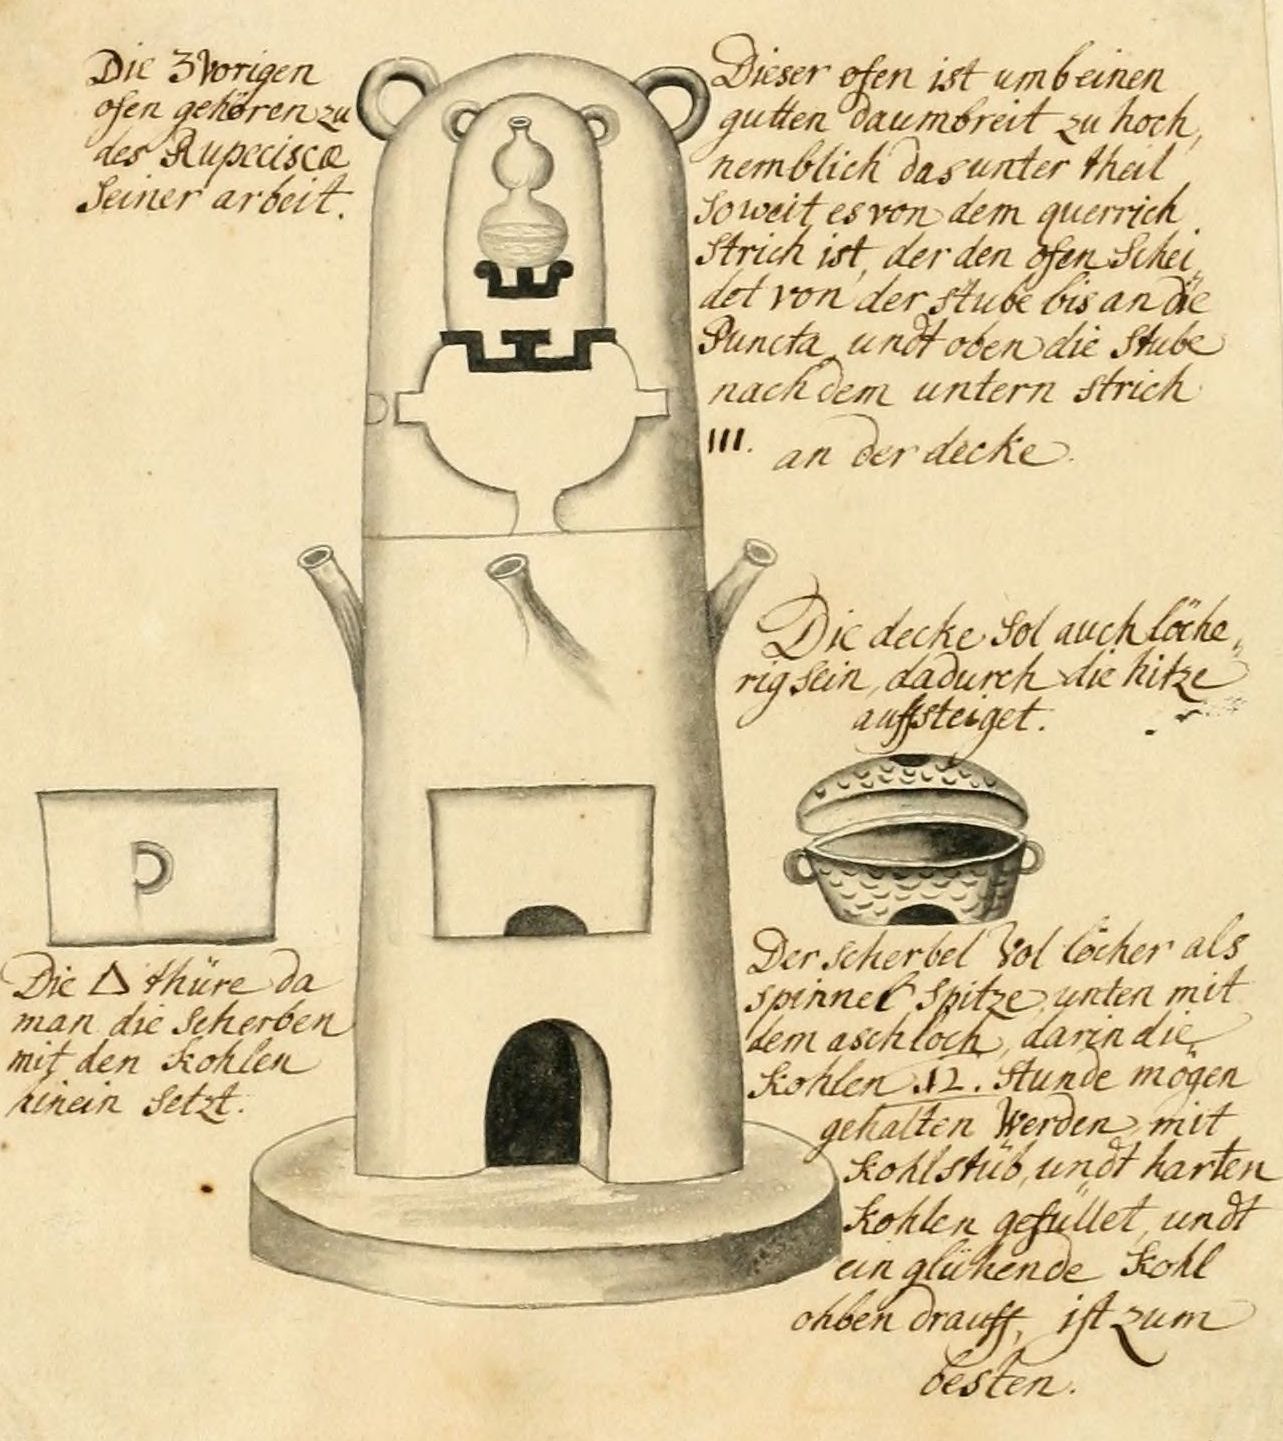 Die 3 Vorigen
ofen gehören zu
des Rupeciscæ
Seiner arbeit.
Dieser ofen ist umb einen
gutten daumbreit zu hoch,
nemblich das unter theil
soweit es von dem querrich
strich ist, der den ofen Schei„
det von der stube bis an die
Puncta, undt oben die Stube
nach dem untern strich
III. an der decke.
Die decke sol auch löche„
rig sein, dadurch die hitze
auffsteiget.
Die Δ thüre da
man die Scherben
mit den Kohlen
hinein setzt.
Der scherbel Vol löcher als
spinnel Spitze, unten mit
dem aschloch, darin die
Kohlen 12. Stunde mögen
gehalten Werden, mit
Kohlstüb, undt harten
Kohlen gefüllet, undt
ein glühende Kohl
ohben drauff, ist zum
besten.